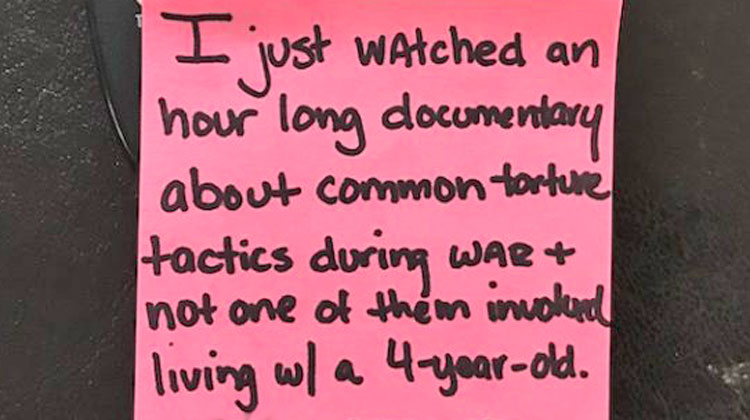 I just watched an
hour long documentary
about common torture
tactics during WAR +
not one of them involved
living w/ a 4-year-old.